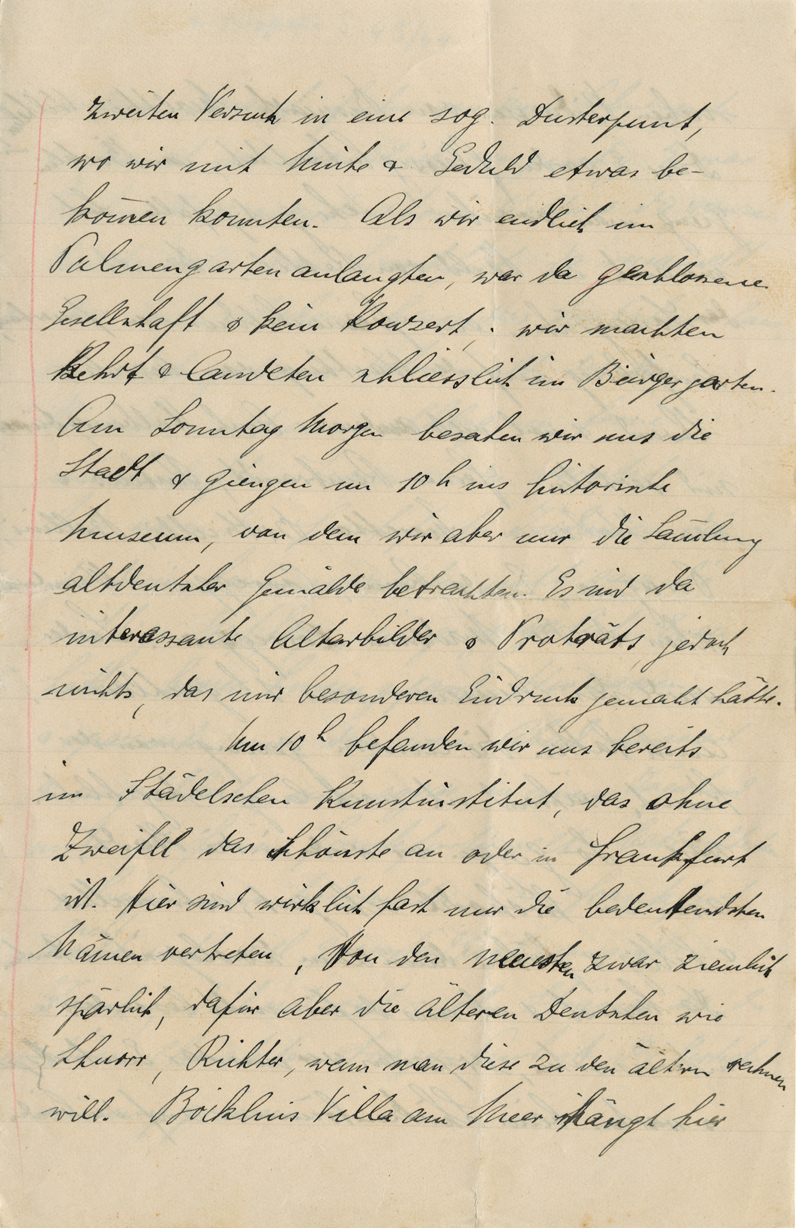 zweiten Versuch in eine sog.
wo wir mit Mühe & Geduld etwas be-
kom̄en konnten. Als wir endlich im
Palmengarten anlangten, war da geschlossene
Gesellschaft & kein Konzert, wir machten
Kehrt & landeten schliesslich im Bürgergarten.
Am Sonntag Morgen besahen wir uns die
Stadt & giengen um 10 h ins historische
Museum, von dem wir aber nur die Sam̄lung
altdeutscher Gemälde betrachten. Es sind da
interessante Altarbilder & Proträts, jedoch
nichts, das mir besonderen Eindruck gemacht hätte.
Um 10 h befanden wir uns bereits
im Städelschen Kunstinstitut, das ohne
Zweifel das Schönste an oder in Frankfurt
ist. Hier sind wirklich fast nur die bedeutendsten
Namen vertreten, Von den neuesten zwar ziemlich
spärlich, dafür aber die älteren Deutschen wie
Schnorr, Richter, wenn man diese zu den ältern rechnen
will. Böcklins Villa am Meer hängt hier